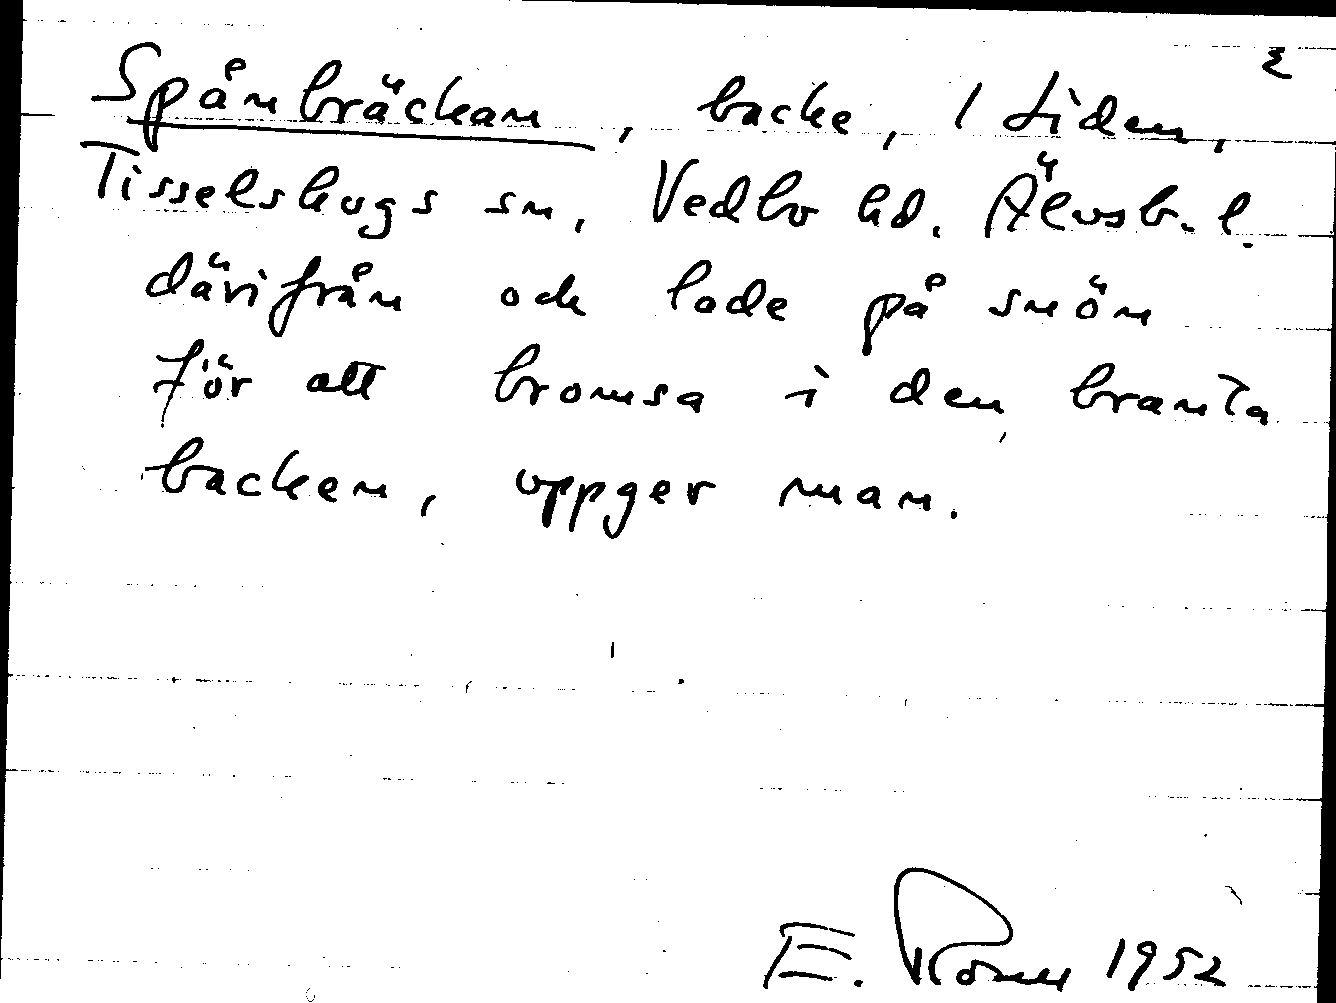 2
Spånbräckan, backe, 1 Liden,
Tisselskogs sn, Vedbo hd. Älvsb. l.
därifrån och lade på snön
för att bromsa i den branta
backen, uppger man.
E. 1952